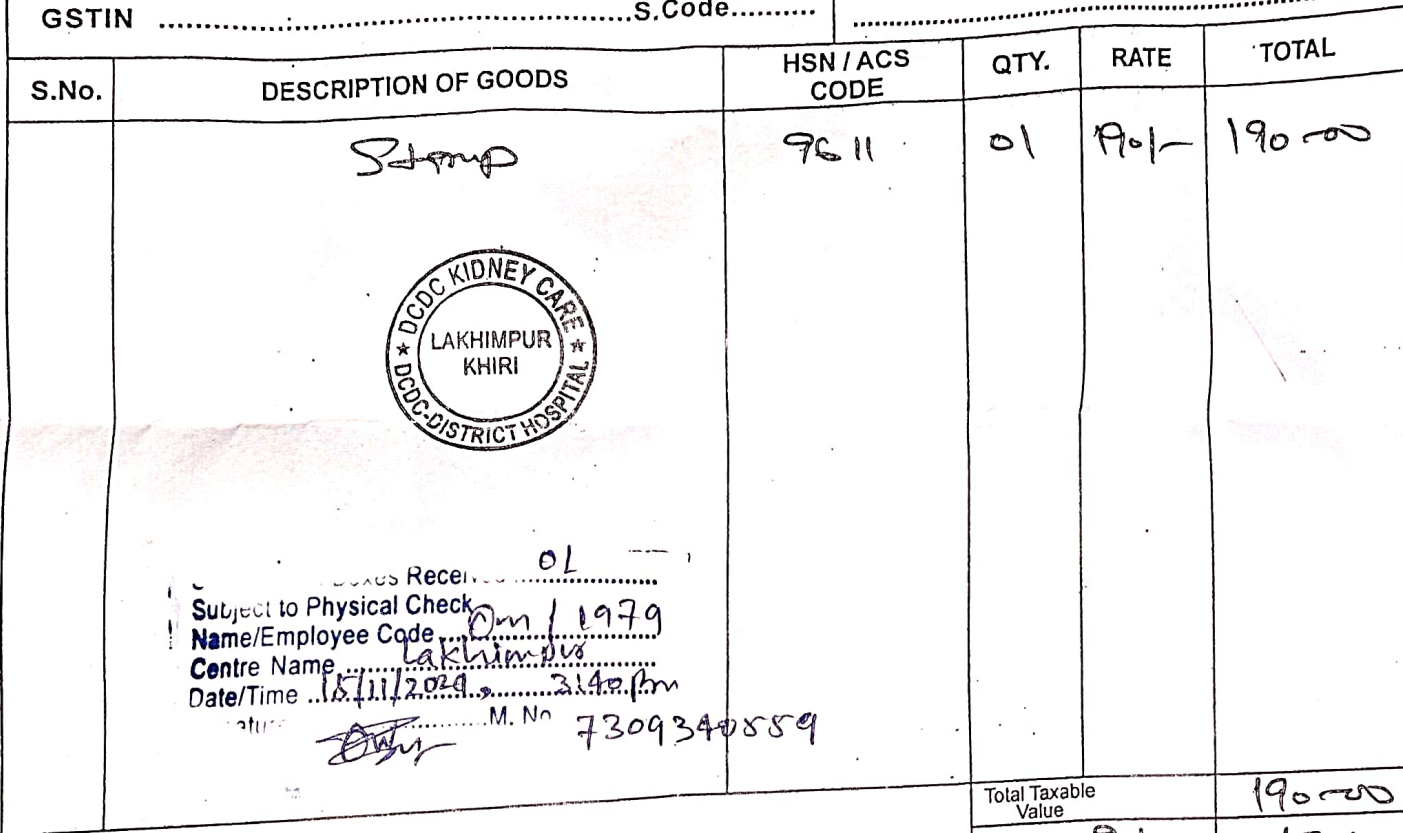 GSTIN ..................................................S.Code..........
S.No. DESCRIPTION OF GOODS HSN / ACS CODE QTY. RATE TOTAL
Stamp 9611 01 190/- 190-00
★ DCDC KIDNEY CARE ★
LAKHIMPUR
KHIRI
DCDC-DISTRICT HOSPITAL
Boxes Received 01
Subject to Physical Check
Name/Employee Code Om / 1979
Centre Name Lakhimpur
Date/Time 15/11/2024, 3:40 Pm
M. No 7309340559
Total Taxable
Value 190-00